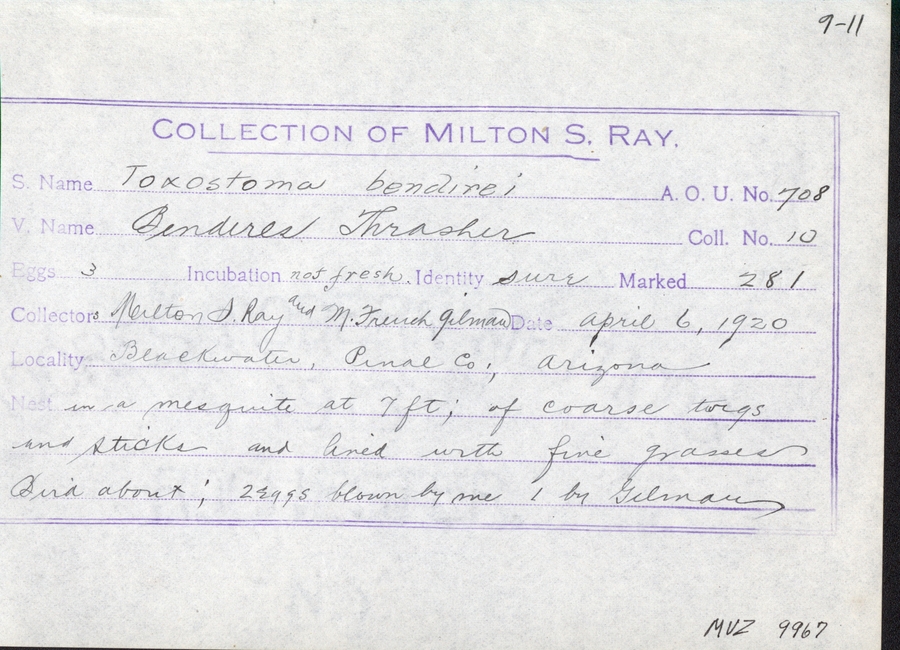 9-11
COLLECTION OF MILTON S. RAY.
S. Name Toxostoma bendirei A. O. U. No. 708
V. Name Benderes Thrasher Coll. No. 10
Eggs 3 Incubation not fresh. Identity sure Marked 281
Collectors Milton S. Ray and M. French Gilman Date april 6, 1920
Locality Blackwater, Pinal Co., arizona
Nest in a mesquite at 7 ft; of coarse twigs
and sticks and lined with fine grasses
Bird about; 2 eggs blown by me 1 by Gilman
MVZ 9967